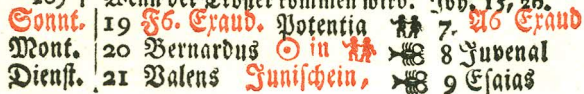 Wenn der Tröster kommen wird. Joh. 15, 26.
Sonnt. 19 F6. Exaud. Potentia 7. A6 Exaud
Mont. 20 Bernardus ☉ in ♊ 8 Juvenal
Dienst. 21 Valens Junischein, 9 Esaias